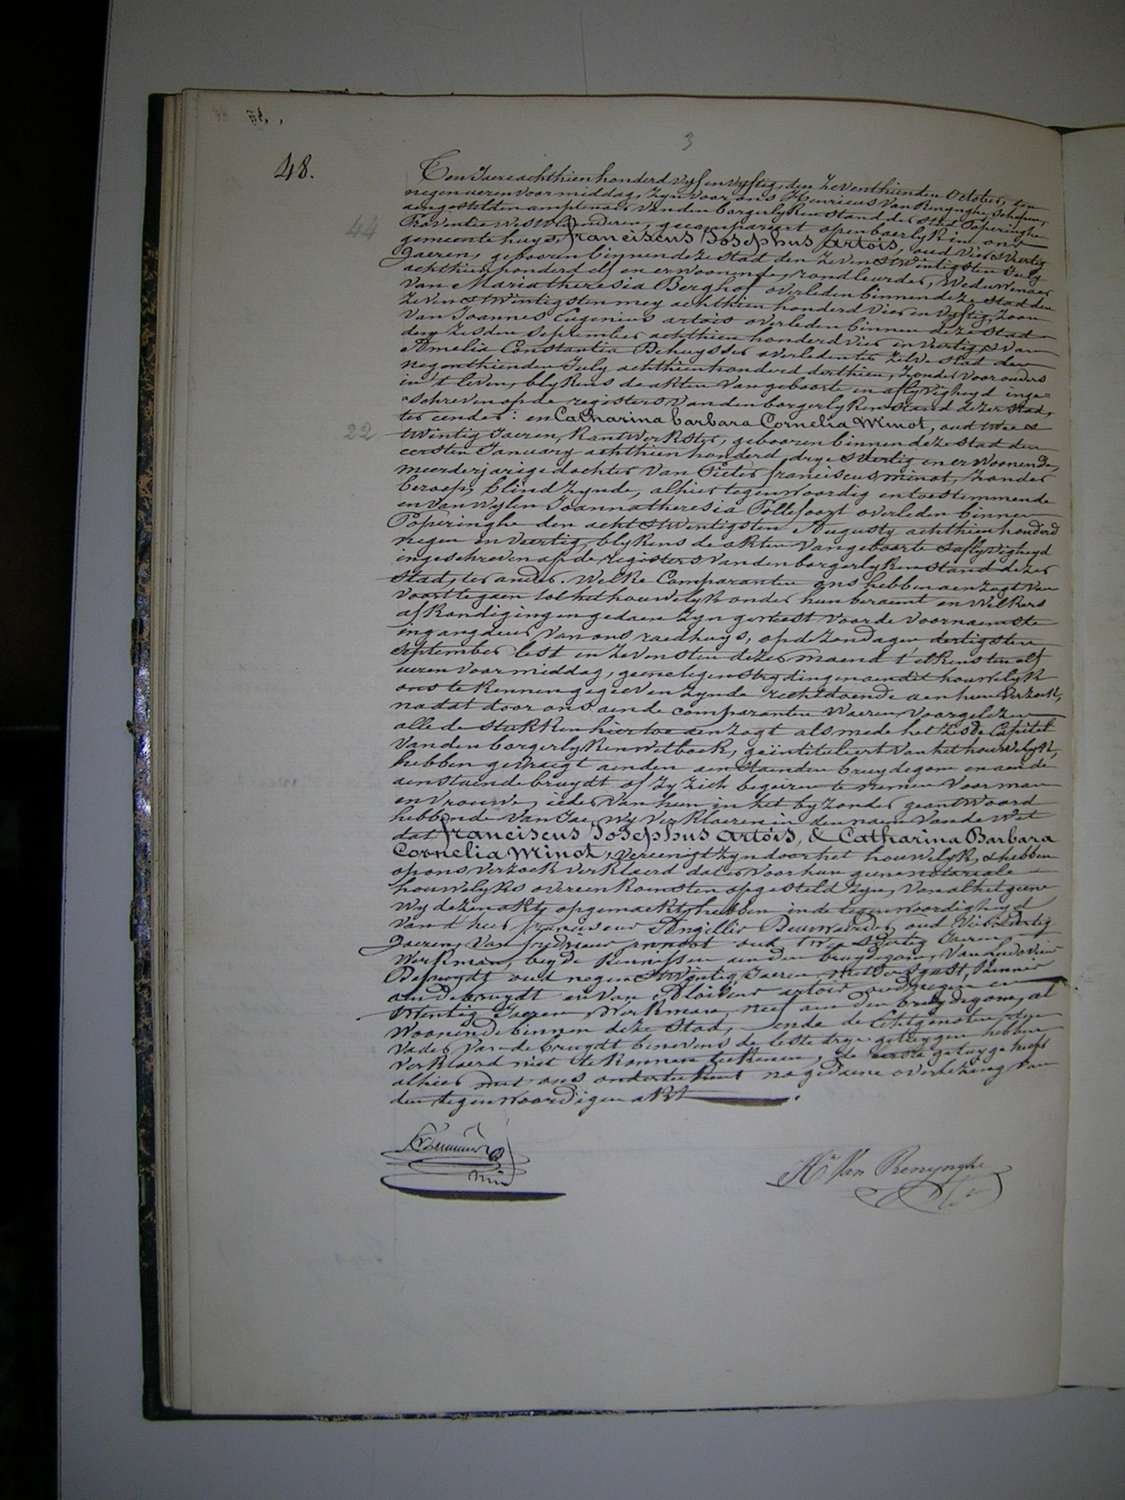 3
48.
Ten Jaere achthien honderd vyf en vyftig, den zeventhienden October, ten
negen ueren voormiddag, Zyn voor ons Henricus Van Renynghe, Schepen,
aengestelden amptenaer van den borgerlyken stand der stad Poperinghe
44
Provintie West-Vlanderen, gecompareert openbaerlyk in ons
gemeente huys, franciscus Josephus Artois, oud vier & vertig
Jaeren, geboren binnen deze stad den zeven & twintigsten July
achthien honderd elf en er woonende, rondleurder, Weduwenaer
van Maria theresia Berghof overleden binnen deze stad den
zeven & twintigsten mey achthien honderd vier en vyftig, zoon
van Joannes Eugenius artois overleden binnen deze stad
den zesden September achthien honderd vier en veertig, & van
Amelia Constantia Dehuysser overleden ter zelve stad den
negenthienden July achthien honderd derthien, zonder voorouders
in 't leven, blykens de akten van geboorte en aflyvigheyd inge-
schreven op de registers van den borgerlyken stand dezer stad,
ter eender: en Catharina barbara Cornelia Minot, oud twee &
22
twintig Jaeren, kantwerkster, geboren binnen deze stad den
eersten January achthien honderd drye & dertig en er woonende,
meerderjarige dochter van Pieter franciscus minot, zonder
beroep, blind zynde, alhier tegenwoordig en toestemmende
en van wylen Joanna theresia Tollefoort overleden binnen
Poperinghe den acht & twintigsten Augusty achthien honderd
negen en veertig, blykens de akten van geboorte & aflyvigheyd
ingeschreven op de registers van den borgerlyken stand dezer
stad, ter ander. Welke Comparanten ons hebben aenzogt van
voort te gaen tot het houwelyk onder hun beraemt en welkers
afkondigingen gedaen zyn geweest voor de voornaemste
ingangdeur van ons raedhuys, op de zondagen dertigsten
September lest en zevensten dezer maend t'elkens ten elf
ueren voormiddag, geene tegenstrydingen aen dit houwelyk
ons te kennen gegeeven zynde rechtdoende aen hun verzoek,
nadat door ons aen de comparanten waeren voorgelezen
alle de stukken hier toe aenzogt als mede het zesde Capitel
van den borgerlyken wetboek, geïntituleert van het houwelyk,
hebben gevraegt aen den aenstaenden bruydegom en aen de
aenstaende bruydt of zy zich begeiren te nemen voor man
en vrouwe, ieder van hun in het byzonder geantwoord
hebbende van Jae, Wy verklaeren in den naem van de Wet
dat franciscus Josephus Artois, & Catharina Barbara
Cornelia Minot, vereenigt zyn door het houwelyk, & hebben
op ons verzoek verklaerd dat er voor hun geene notariale
houwelyks overeenkomsten opgesteld zyn, Van al het geene
wy dezen akt opgemaekt hebben in de tegenwoordigheyd
van d'heer oud
Jaeren, van oud twee & dertig Jaeren
Werkman, beyde kennissen aen den bruydegom, van
oud negen & twintig Jaeren, kennis
aen de bruydt en van artois oud negen en
twintig Jaeren, Werkman, neef aen den bruydegom, al
woonende binnen deze stad, ende de Echtgenoten, den
vader van de bruydt benevens de leste drye getuygen hebben
verklaerd niet te konnen teekenen, de eerste getuyge heeft
alhier met ons onderteekent na gedaene overlezing van
den tegenwoordigen akt.
Hri Van Renynghe